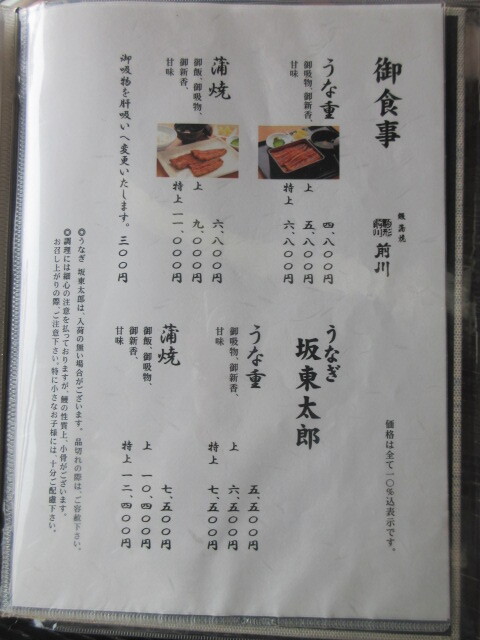 御食事
鰻蒲焼
駒形
前川
うな重
御吸物、御新香、
甘味
四、八〇〇円
上 五、八〇〇円
特上 六、八〇〇円
蒲焼
御飯、御吸物、
御新香、
甘味
六、八〇〇円
上 九、〇〇〇円
特上 一一、〇〇〇円
御吸物を肝吸いへ変更いたします。 三〇〇円
価格は全て一〇%込表示です。
うなぎ
坂東太郎
うな重
御吸物、御新香、
甘味
五、五〇〇円
上 六、五〇〇円
特上 七、五〇〇円
蒲焼
御飯、御吸物、
御新香、
甘味
七、五〇〇円
上 一〇、四〇〇円
特上 一二、四〇〇円
◎うなぎ 坂東太郎は、入荷の無い場合がございます。品切れの際は、ご容赦下さい。
◎調理には細心の注意を払っておりますが、鰻の性質上、小骨がございます。
お召し上がりの際、ご注意下さい。特に小さなお子様には、十分ご配慮下さい。